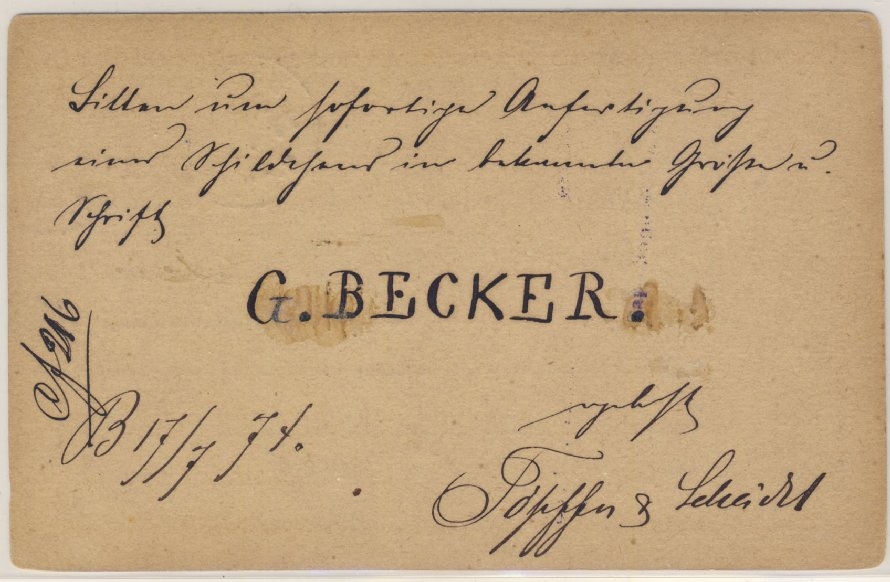 Bitten um sofortige Anfertigung
eines Schildchens in bekannter Größe u.
Schrift
G. BECKER.
B 17/7 74.
ergebenst
Töpffer & Scheidt